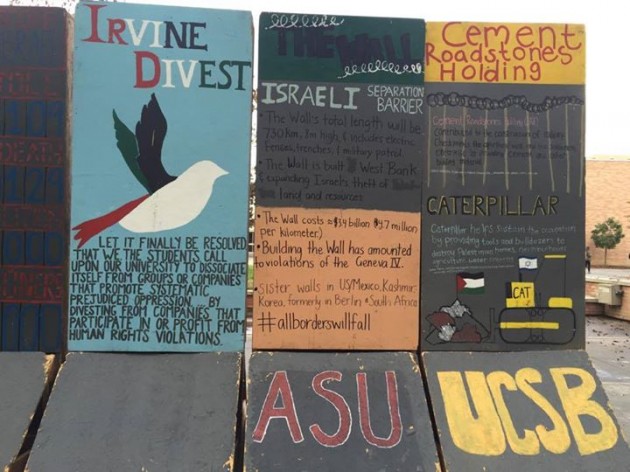 IRVINE
DIVEST
LET IT FINALLY BE RESOLVED
THAT WE THE STUDENTS CALL
UPON OUR UNIVERSITY TO DISSOCIATE
ITSELF FROM GROUPS OR COMPANIES
THAT PROMOTE SYSTEMATIC
PREJUDICED OPPRESSION... BY
DIVESTING FROM COMPANIES THAT
PARTICIPATE IN OR PROFIT FROM
HUMAN RIGHTS VIOLATIONS.
THE WALL
ISRAELI SEPARATION
BARRIER
The Wall's total length will be
730km, high, & includes electric
fences, trenches, & military patrol
The Wall is built West Bank
expanding Israel's of
land and resources
The Wall costs ≈ billion $3.7 million
per kilometer)
Building the Wall has amounted
to violations of the Geneva IV.
Sister walls in US/Mexico, Kashmir,
Korea, formerly in Berlin & South Africa
#allborderswillfall
Cement
Roadstones
Holding
CATERPILLAR
Caterpillar the occupation
by providing tools and bulldozers to
destroy
CAT
ASU
UCSB